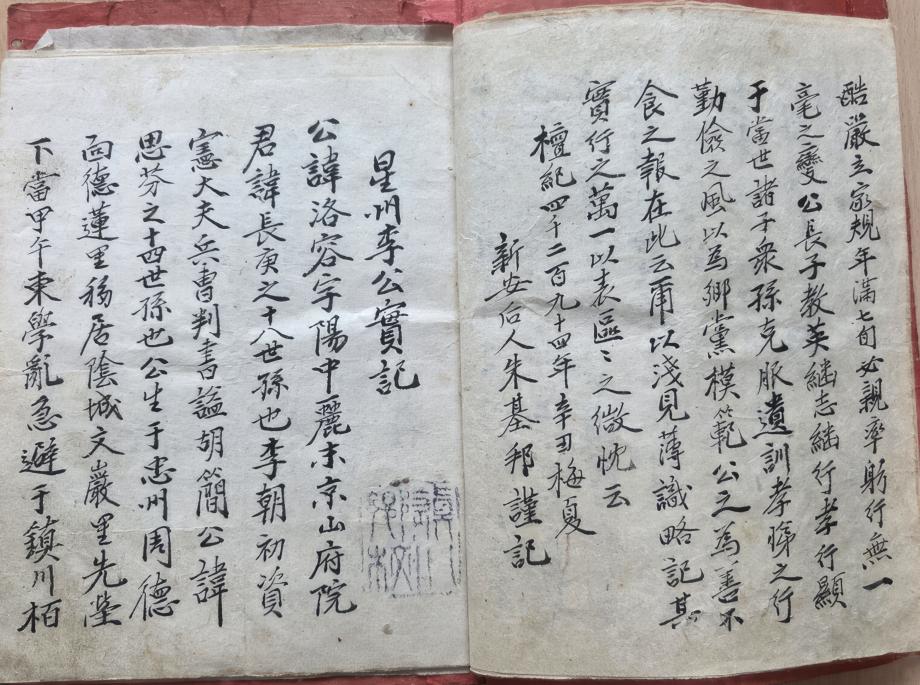 酷嚴立家規年滿七旬必親率躬行無一
毫之變公長子教英繼志繼行孝行顯
于當世諸子衆孫克服遺訓孝悌之行
勤儉之風以為鄉黨模範公之為善不
食之報在此云甫以淺見薄識略記其
實行之萬一以表區〻之微忱云
檀紀四千二百九十四年辛丑梅夏
新安后人朱基邦謹記
星州李公實記
公諱洛容字陽中麗末京山府院
君諱長庚之十八世孫也李朝初資
憲大夫兵曹判書諡胡簡公諱
思芬之十四世孫也公生于忠州周德
面德蓮里移居陰城文巖里先塋
下當甲午東學亂急避于鎮川栢